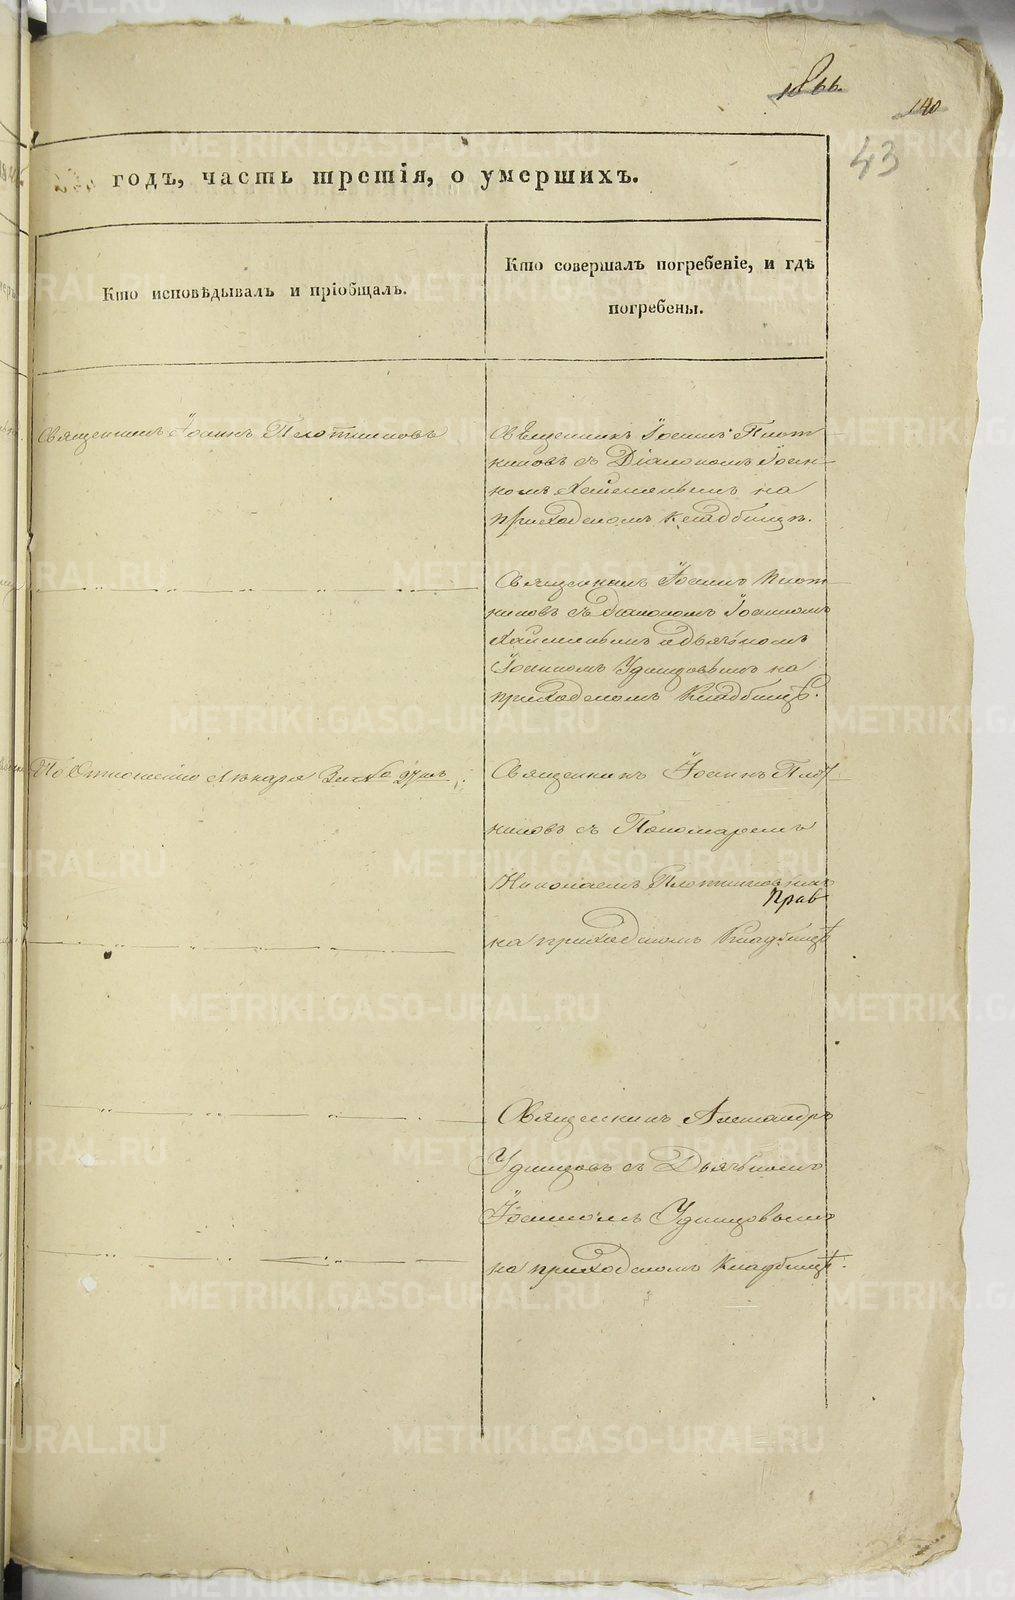 1066.
140
43
годъ, часть третія, о умершихъ.
Кто исповѣдывалъ и пріобщалъ.
Кто совершалъ погребеніе, и гдѣ
погребены.
Священникъ Іоаннъ Плотниковъ
Священникъ Іоаннъ Плот
никовъ съ Діакономъ Іоан
номъ на
приходскомъ кладбищѣ.
Священникъ Іоаннъ Плот
никовъ съ діакономъ Іоанномъ
и дьячкомъ
Іоанномъ Удинцовымъ на
приходскомъ Кладбищѣ.
По Отношенію Лѣкаря
Священникъ Іоаннъ Плот
никовъ съ Пономаремъ
Николаемъ Плотниковымъ
Прав
на приходскомъ Кладбищѣ
Священникъ Александръ
Удинцовъ съ Дьячкомъ
Іоанномъ Удинцовымъ
на приходскомъ Кладбищѣ.
METRIKI.GASO-URAL.RU